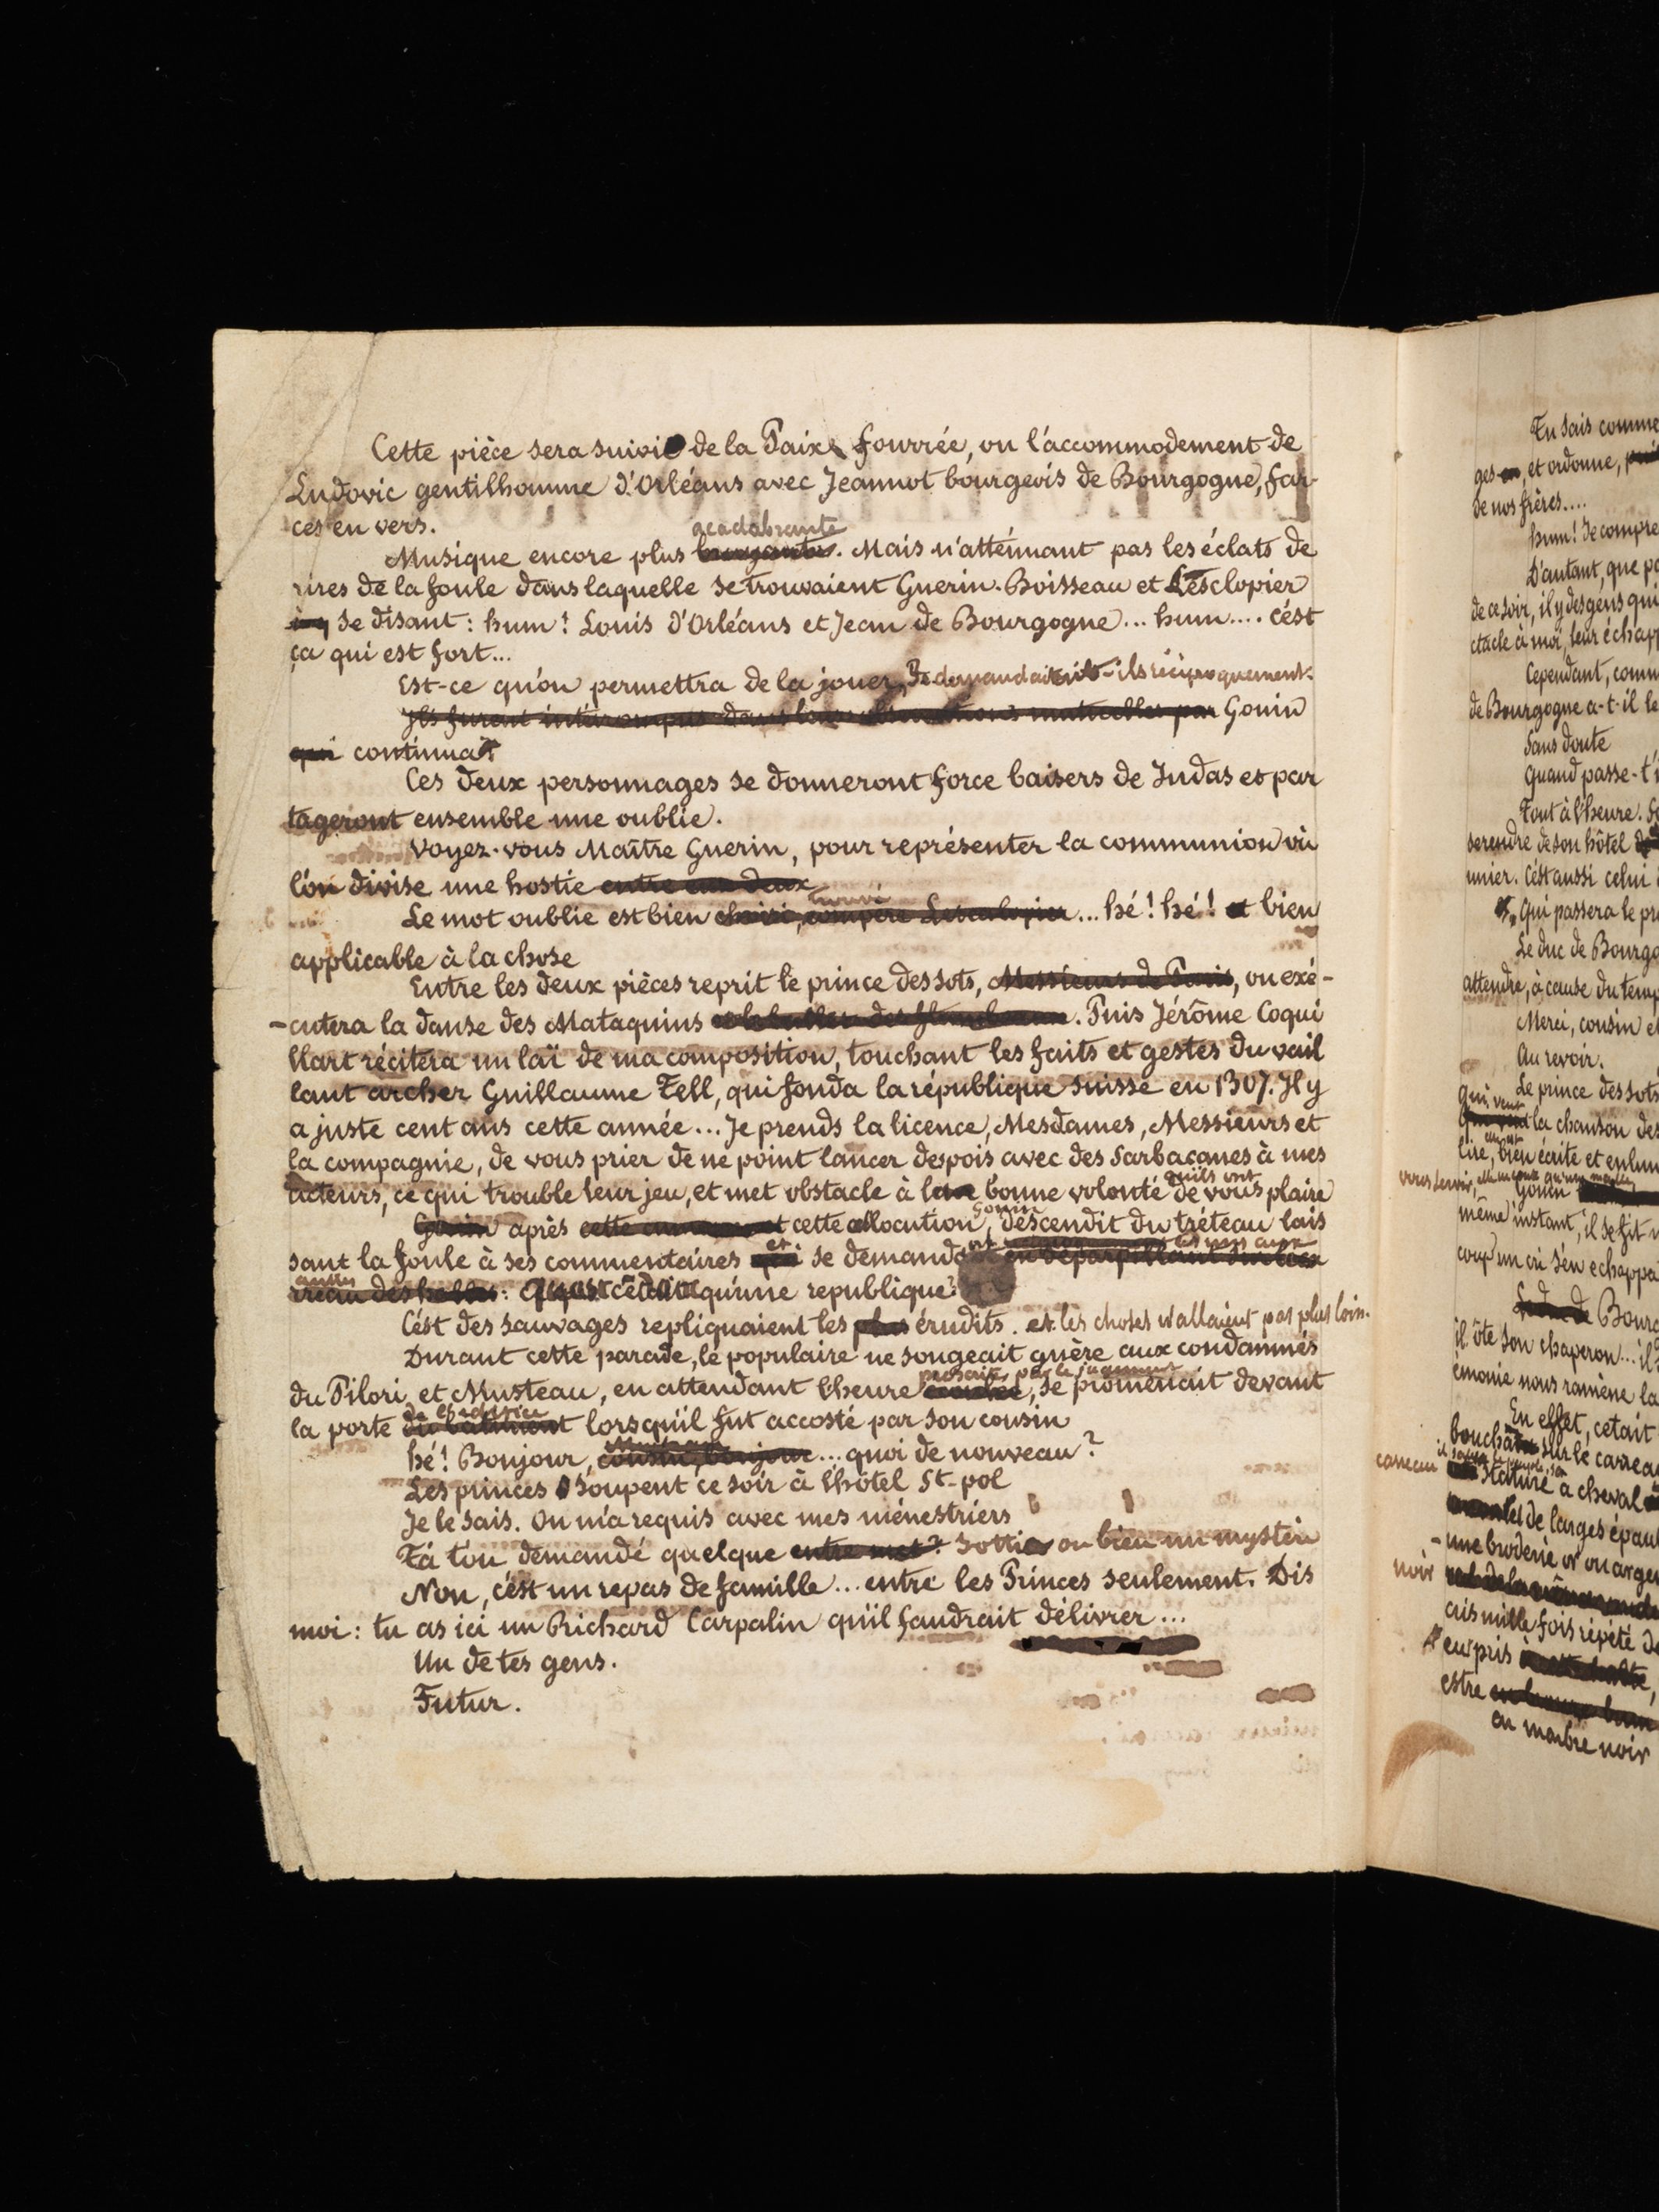 Cette pièce sera suivie de la Paix fourrée, ou l'accommodement de
Ludovic gentilhomme d'Orléans avec Jeannot bourgeois de Bourgogne, far-
ces en vers.
acadabrante
Musique encore plus bruyante. Mais n'attenuant pas les éclats de
rires de la foule dans laquelle se trouvaient Guerin-Boisseau et L'esclopier
se disant : hum ! Louis d'Orléans et Jean de Bourgogne... hum.... c'est
ça qui est fort...
Est-ce qu'on permettra de la jouer, Se demandaient-ils réciproquement.
Ils furent interrompus dans leurs observations mutuelles par Gonin
qui continua
Ces deux personnages se donneront force baisers de Judas et par
tageront ensemble une oublie.
Voyez-vous Maître Guerin, pour représenter la communion où
l'on divise une hostie entre eux deux
trouvé
Le mot oublie est bien choisi, compère Lescalopier... hé ! hé ! et bien
applicable à la chose
Entre les deux pièces reprit le prince des sots, Messieurs de Paris, on exé-
-cutera la danse des Mataquins. Puis Jérôme Coqui
llart récitera un laï de ma composition, touchant les faits et gestes du vail
lant archer Guillaume Tell, qui fonda la république suisse en 1307. Il y
a juste cent ans cette année... Je prends la licence, Mesdames, Messieurs et
la compagnie, de vous prier de ne point lancer des pois avec des Sarbacanes à mes
qu'ils ont
acteurs, ce qui trouble leur jeu, et met obstacle à la bonne volonté de vous plaire
Gonin
Gonin après cette cette allocution, descendit du tréteau lais
et
sant la foule à ses commentaires qui se demand en s'éparpillant sur le ca
rreau des halles : qu'une republique ?
C'est des sauvages repliquaient les plus érudits. et les choses n'allaient pas plus loin.
Durant cette parade, le populaire ne songeait guère aux condamnés
par le jugement
du Pilori, et Musteau, en attendant l'heure, se promenait devant
de l'édifice
la porte du bâtiment lorsqu'il fut accosté par son cousin
Musteau
hé ! Bonjour, cousin, bonjour... quoi de nouveau ?
Les princes soupent ce soir à l'hôtel St-pol
Je le sais. On m'a requis avec mes ménestriers
T'a t'on demandé quelque entre met ? Sottie ou bien un mystère
Non, c'est un repas de famille... entre les Princes seulement. Dis
moi : tu as ici un Richard Carpalin qu'il faudrait délivrer...
Un de tes gens.
Futur.
Tu sais comme
ges, et ordonne,
de nos frères....
hum ! Je compre
D'autant, que pa
de ce soir, il y des gens qui
ctacle à moi, leur échapp
Cependant, comm
de Bourgogne a-t-il le
Sans doute
Quand passe-t'i
Tout à l'heure.
se rendre de son hôtel
unier. C'est aussi celui
Qui passera le pr
Le duc de Bourgo
attendre, à cause du temp
Merci, cousin et
Au revoir.
Le prince des sots
Qui veut
la chanson des
lire, bien écrite et enlum
Gonin
même instant, il se fit
coup un cri s'en echappa
Le duc de Bourg
il ôte son chaperon... il
emonie nous ramène la
En effet, cetait
sur le carreau
carreau
stature à cheval
de larges épaul
-une broderie or ou argen
noir
ais mille fois répété de
eu pris
estre
en marbre noir